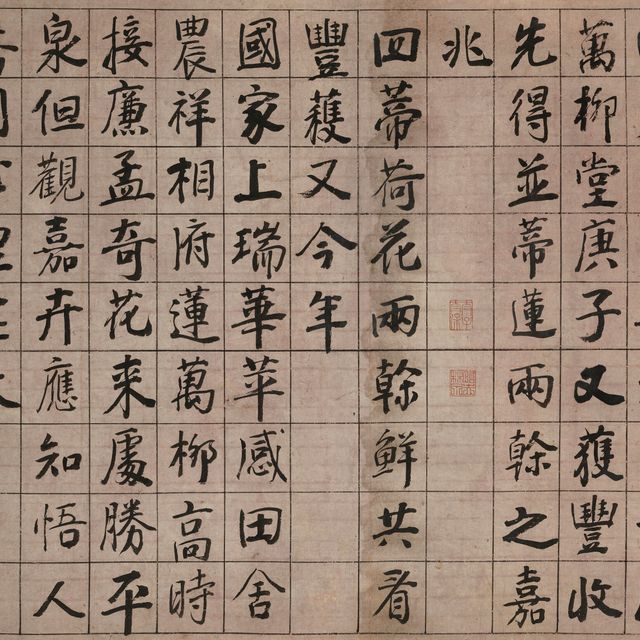 萬柳堂庚子又獲豐收
先得並蒂蓮兩榦之嘉
兆
四蒂荷花兩榦鮮共看
豐穫又今年
國家上瑞華苹感田舍
農祥相府蓮萬柳高時
接廉孟奇花来處勝平
泉但觀嘉卉應知悟人